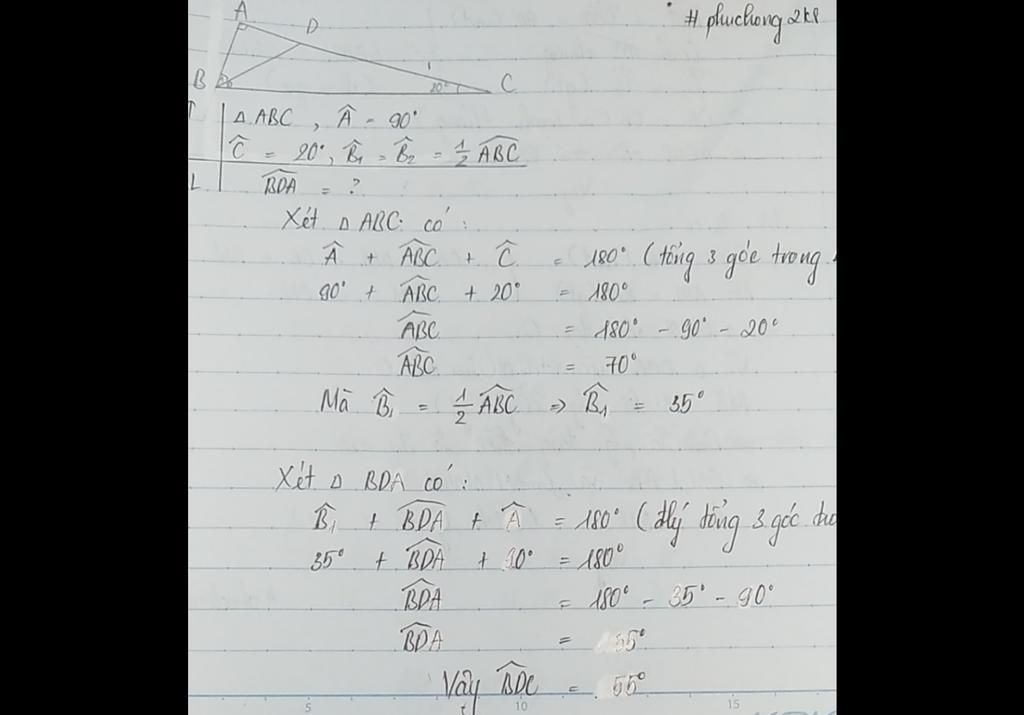 # phuchong 2k8
A
D
B
20°
C
Δ ABC, Â = 90°
Ĉ = 20°, B̂₁ = B̂₂ = 1/2 ABC
L
BDA = ?
Xét Δ ABC có:
Â + ABC + Ĉ = 180° (tổng 3 góc trong
90° + ABC + 20° = 180°
ABC = 180° - 90° - 20°
ABC = 70°
Mà B̂₁ = 1/2 ABC ⇒ B̂₁ = 35°
Xét Δ BDA có:
B̂₁ + BDA + Â = 180° (đlý tổng 3 góc
35° + BDA + 90° = 180°
BDA = 180° - 35° - 90°
BDA = 55°
Vậy BDC = 55°
5 10 15